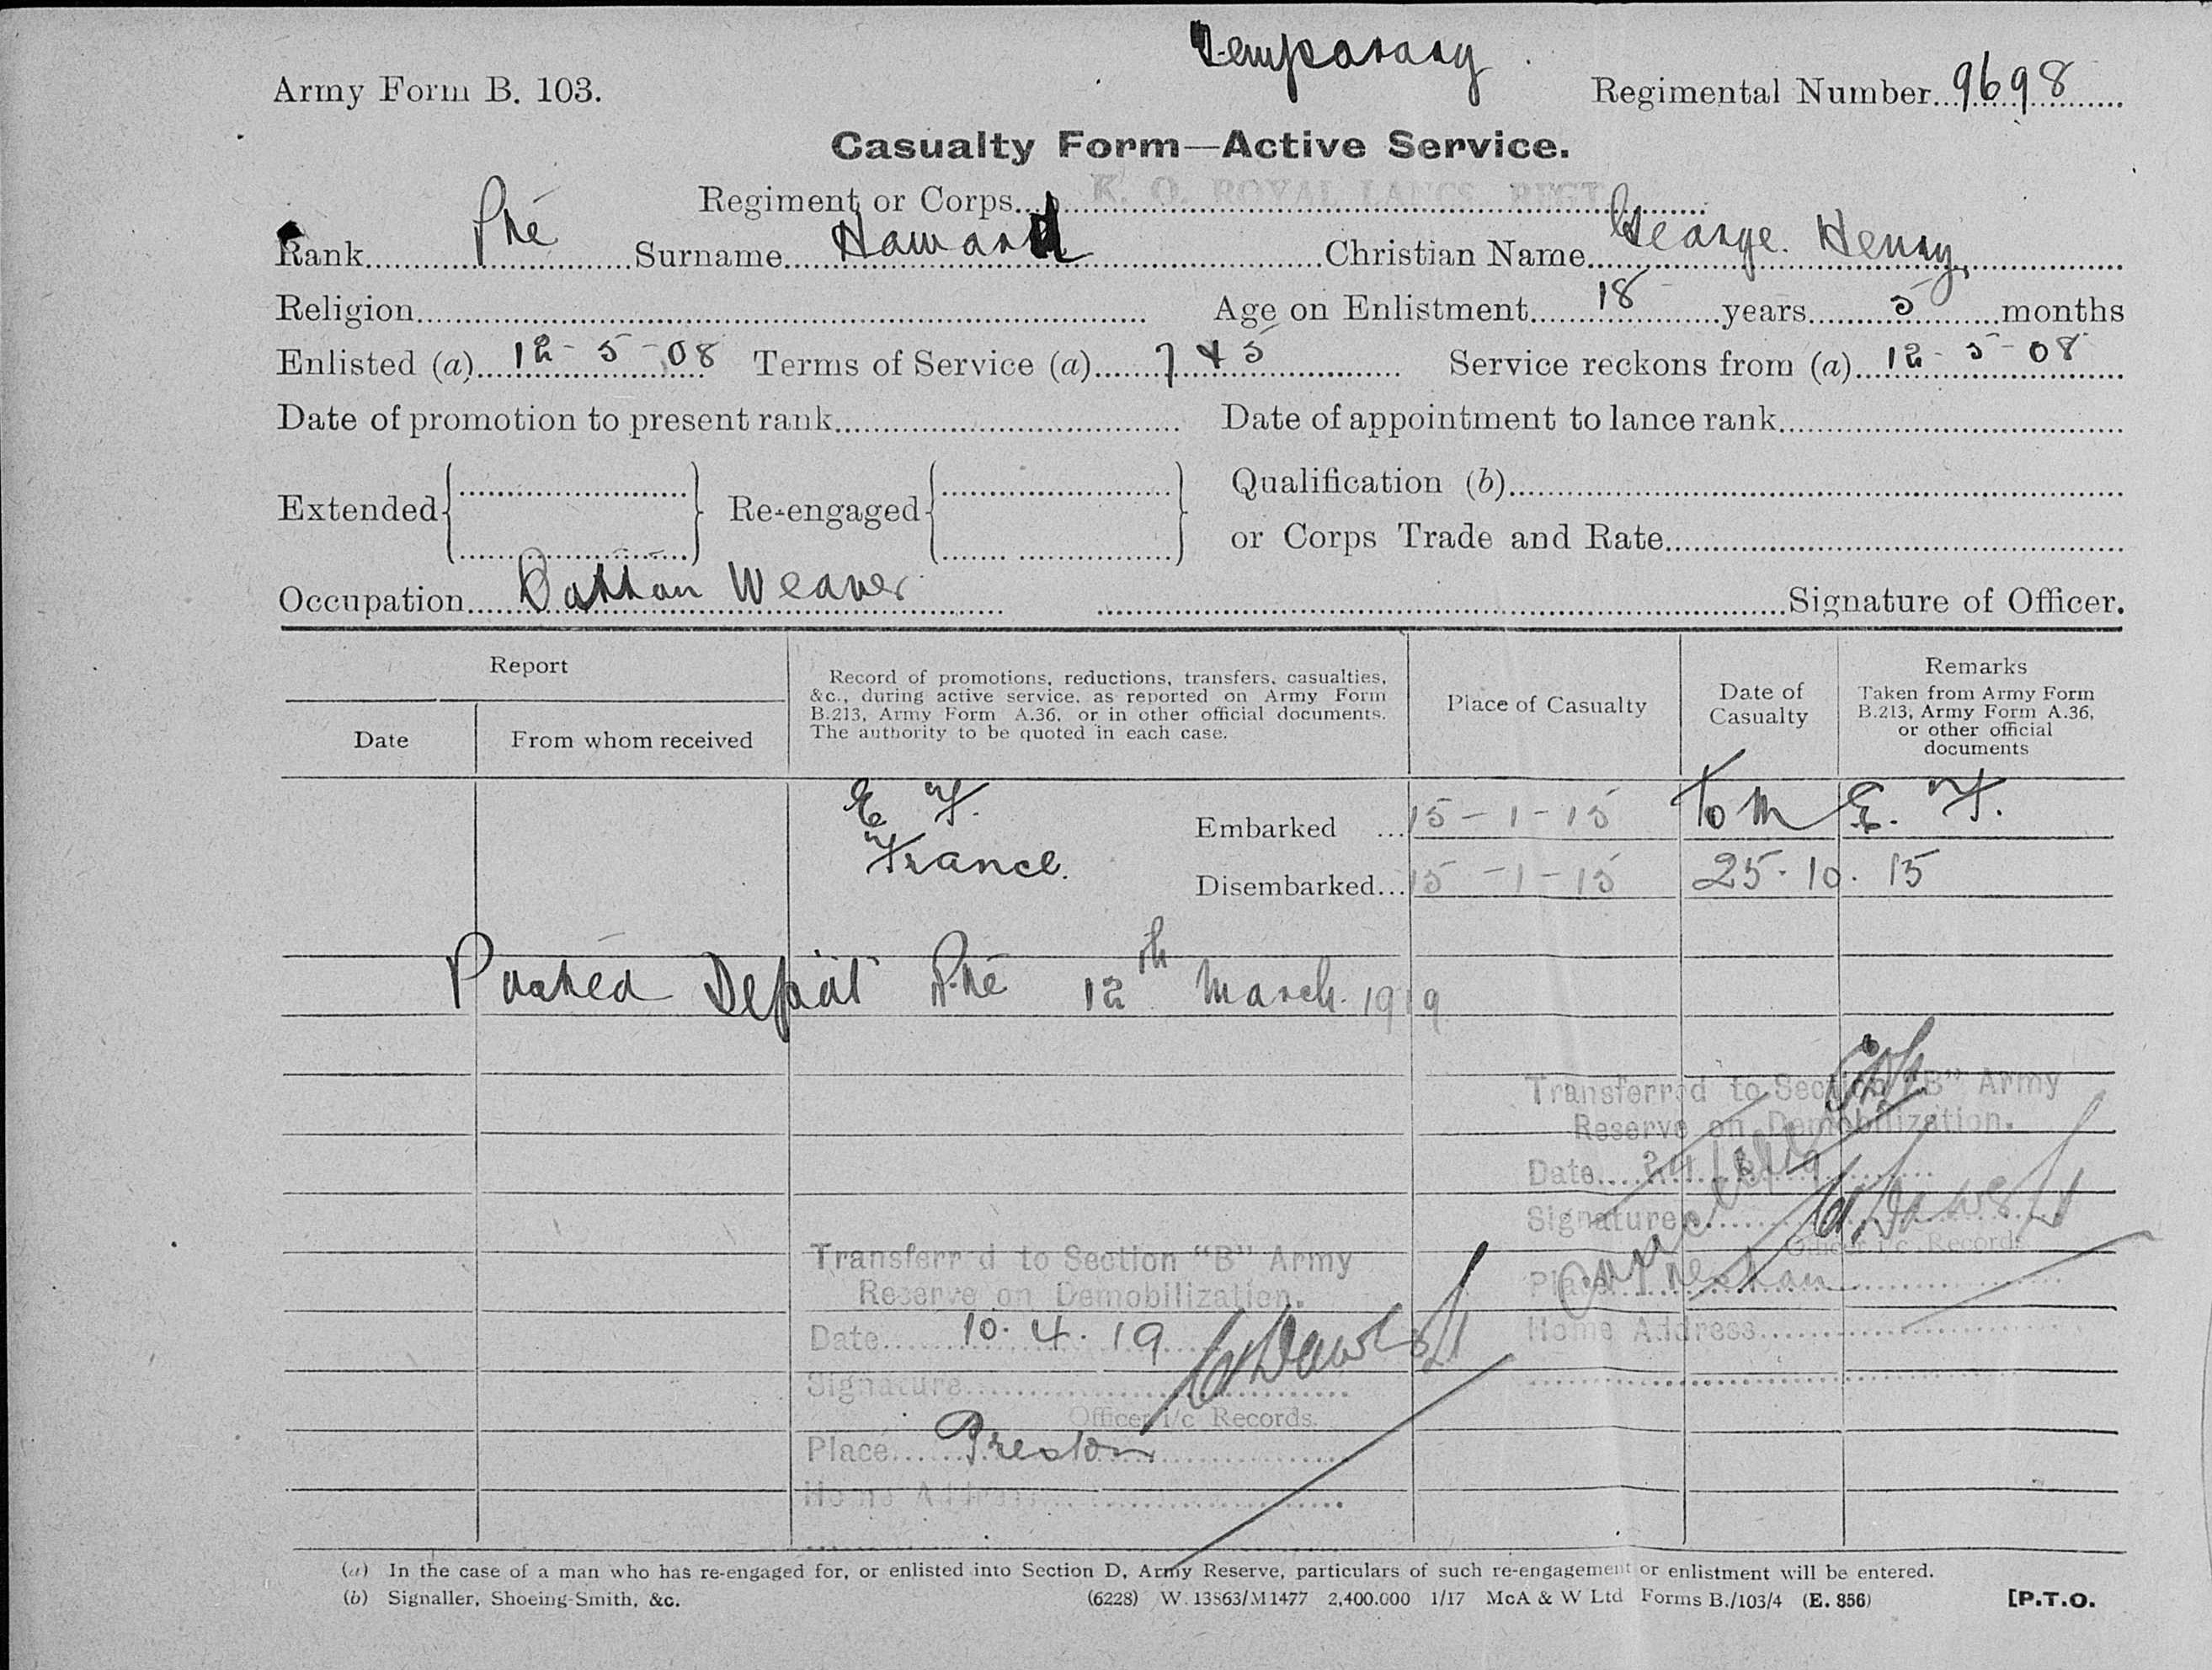 Temporary
Army Form B. 103.
Regimental Number 9698
Casualty Form—Active Service.
Regiment or Corps K. O. ROYAL LANCS. REGT.
Rank Pte Surname Howard Christian Name George. Henry,
Religion Age on Enlistment 18 years 5 months
Enlisted (a) 12-5-08 Terms of Service (a) 7 & 5 Service reckons from (a) 12-5-08
Date of promotion to present rank Date of appointment to lance rank
Extended Re-engaged Qualification (b)
or Corps Trade and Rate
Occupation Cotton Weaver Signature of Officer.
Report
Date
From whom received
Record of promotions, reductions, transfers, casualties,
&c., during active service, as reported on Army Form
B.213, Army Form A.36, or in other official documents.
The authority to be quoted in each case.
Place of Casualty
Date of
Casualty
Remarks
Taken from Army Form
B.213, Army Form A.36,
or other official
documents
E. F.
France.
Embarked ... 15-1-15 To M E. F.
Disembarked... 15-1-15 25.10.15
Posted Depot Pte 12th March. 1919
Transferred to Section "B" Army
Reserve on Demobilization.
Date
Signature
Officer i/c Records
Place Preston
Home Address
Cancelled
Transferr d to Section "B" Army
Reserve on Demobilization.
Date 10.4.19
Signature
Officer i/c Records.
Place Preston
Home Address
(a) In the case of a man who has re-engaged for, or enlisted into Section D, Army Reserve, particulars of such re-engagement or enlistment will be entered.
(b) Signaller, Shoeing-Smith, &c. (6228) W. 13563/M1477 2,400.000 1/17 McA & W Ltd Forms B./103/4 (E. 856) [P.T.O.